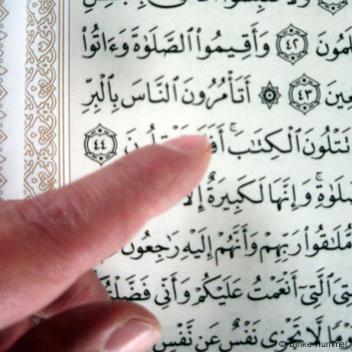 بِٱلۡبَـٰطِلِ
لَمُونَ ٤٢ وَأَقِيمُوا۟ ٱلصَّلَوٰةَ وَءَاتُوا۟
عِينَ ٤٣ ۞ أَتَأۡمُرُونَ ٱلنَّاسَ بِٱلۡبِرِّ
تَتۡلُونَ ٱلۡكِتَـٰبَۚ ٤٤
صَّلَوٰةِۚ وَإِنَّهَا لَكَبِيرَةٌ إِلَّا
مُّلَـٰقُوا۟ رَبِّهِمۡ وَأَنَّهُمۡ إِلَيۡهِ رَٰجِعُونَ
تِىَ ٱلَّتِىٓ أَنۡعَمۡتُ عَلَيۡكُمۡ وَأَنِّى فَضَّلۡ
مًا لَّا تَجۡزِى نَفۡسٌ عَن نَّفۡسٍ
© Ulrike Hummel